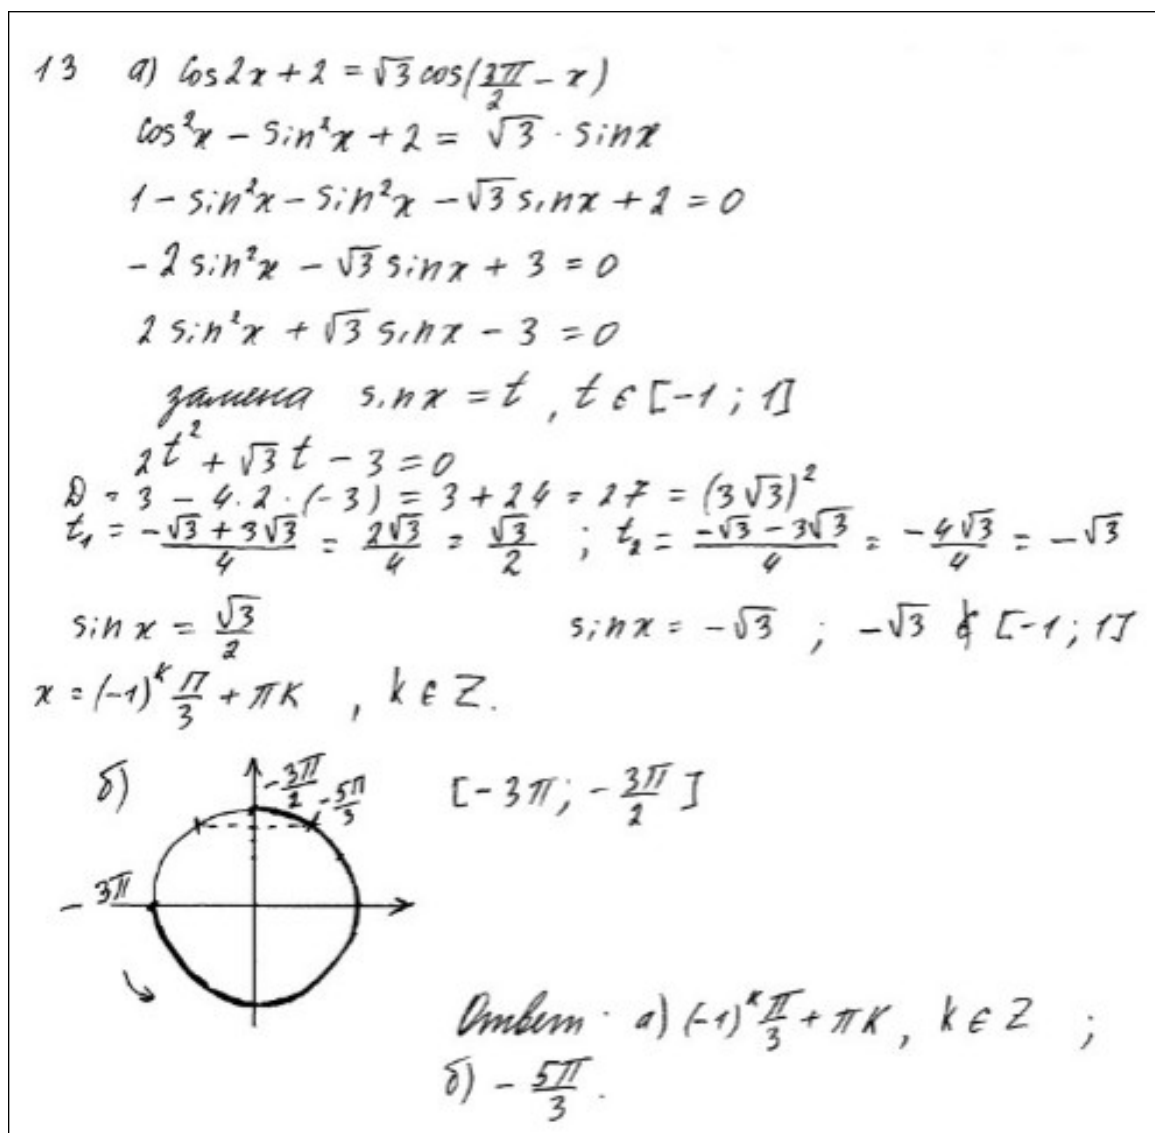 13 а) cos2x + 2 = √3 cos(3π/2 − x)
cos²x − sin²x + 2 = √3 · sinx
1 − sin²x − sin²x − √3 sinx + 2 = 0
− 2 sin²x − √3 sinx + 3 = 0
2 sin²x + √3 sinx − 3 = 0
замена sinx = t , t ∈ [−1 ; 1]
2t² + √3 t − 3 = 0
D = 3 − 4·2·(−3) = 3 + 24 = 27 = (3√3)²
t₁ = (−√3 + 3√3)/4 = 2√3/4 = √3/2 ; t₂ = (−√3 − 3√3)/4 = −4√3/4 = −√3
sinx = √3/2 sinx = −√3 ; −√3 ∉ [−1 ; 1]
x = (−1)^k π/3 + πk , k ∈ Z.
б) −3π/2 −5π/3 [−3π; −3π/2]
− 3π
Ответ · а) (−1)^k π/3 + πk, k ∈ Z ;
б) − 5π/3 .